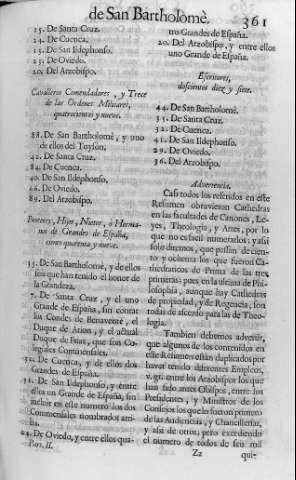 de San Bartholomè. 361
15. De Santa Cruz.
24. De Cuenca.
13. De San Ildephonso.
25. De Oviedo.
20. Del Arzobispo.
Cavalleros Comendadores, y Trece
de las Ordenes Militares,
quatrocientos y nueve.
88. De San Bartholomé, y uno
de ellos del Toyson.
42. De Santa Cruz.
84. De Cuenca.
40. De San Ildephonso.
66. De Oviedo.
89. Del Arzobispo.
Posteres, Hijos, Nietos, ò Herma-
nos de Grandes de España,
ciento quarenta y nueve.
15. De San Bartholomè, y de ellos
los que han tenido el honor de
la Grandeza.
7. De Santa Cruz, y el uno
Grande de España, sin contar
los Condes de Benavente, el
Duque de Arion, y el actual
Duque de Frias, que son Co-
legiales Comensales.
52. De Cuenca, y de ellos dos
Grandes de España.
31. De San Ildephonso, y entre
ellos un Grande de España, sin
incluir en este numero los dos
Commensales nombrados arri-
ba.
24. De Oviedo, y entre ellos qua-
Part. II.
tro Grandes de España.
20. Del Arzobispo, y entre ellos
uno Grande de España.
Escritores,
docientos diez y siete.
44. De San Bartholomè.
35. De Santa Cruz.
32. De Cuenca.
41. De San Ildephonso.
29. De Oviedo.
36. Del Arzobispo.
Advertencia.
Casi todos los referidos en este
Resumen obtuvieron Cathedras
en las facultades de Canones, Le-
yes, Theologia, y Artes, por lo
que no es facil numerarlos: y asi
solo diremos, que pasan de cien-
to y ochenta los que fueron Ca-
thedraticos de Prima de las tres
primeras; pues en la ultima de Phi-
losophia, aunque hay Cathedras
de propiedad, y de Regencia, son
todas de ascenso para las de Theo-
logia.
Tambien debemos advertir,
que algunos de los contenidos en
este Resumen estàn duplicados por
haver tenido diferentes Empleos,
v. gr. entre los Arzobispos los que
han sido antes Obispos, entre los
Presidentes, y Ministros de los
Consejos los que lo fueron primero
de las Audiencias, y Chancillerías,
y asi de otros; pero excediendo
el numero de todos de seis mil
Zz
que-